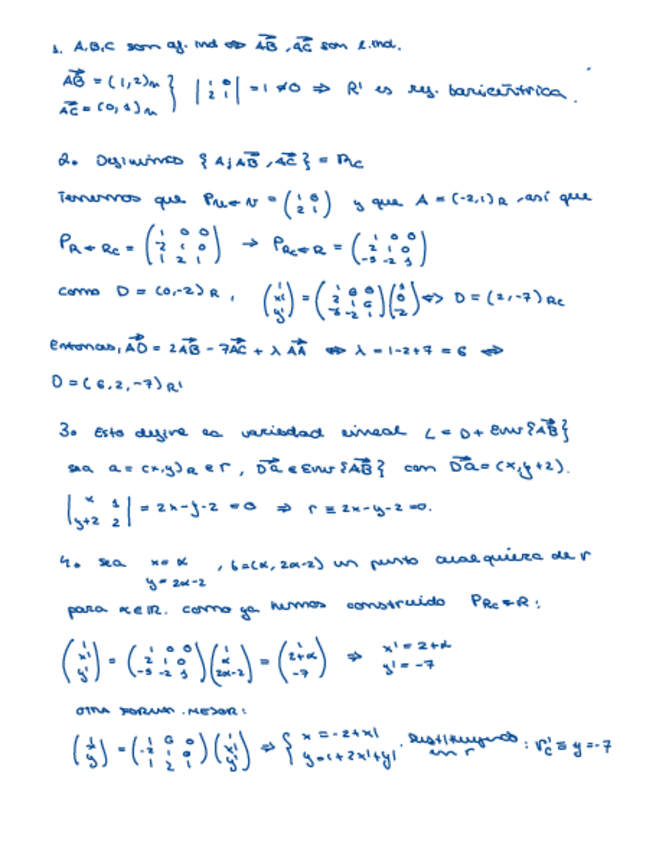 1. A,B,C son af. ind ⇔ AB⃗, AC⃗ son l.ind.
AB⃗ = (1,2)N
AC⃗ = (0,1)N } |1 0; 2 1| = 1 ≠ 0 ⇒ R' es ref. baricéntrica.
2. Definimos {A; AB⃗, AC⃗} = Rc
Tenemos que PN←N = (1 0; 2 1) y que A = (-2,1)R, así que
PR←Rc = (1 0 0; -2 1 0; 1 2 1) → PRc←R = (1 0 0; 2 1 0; -5 -2 1)
como D = (0,-2)R, (1; x'; y') = (1 0 0; 2 1 0; -5 -2 1)(1; 0; -2) ⇔ D = (2,-7)Rc
Entonces, AD⃗ = 2AB⃗ - 7AC⃗ + λ AA⃗ ⇔ λ = 1-2+7 = 6 ⇔
D = (6,2,-7)R'
3. Esto define la variedad lineal L = D + Env{AB⃗}
sea a = (x,y)R ∈ r, Da⃗ ∈ Env{AB⃗} con Da⃗ = (x,y+2).
|x 1; y+2 2| = 2x-y-2 = 0 ⇒ r ≡ 2x-y-2=0.
4. sea x = α
y = 2α-2 , b=(α, 2α-2) un punto cualquiera de r
para α∈R. como ya hemos construido PRc←R:
(1; x'; y') = (1 0 0; 2 1 0; -5 -2 1)(1; α; 2α-2) = (1; 2+α; -7) ⇒ x' = 2+α
y' = -7
OTRA FORMA MEJOR:
(1; x; y) = (1 0 0; -2 1 0; 1 2 1)(1; x'; y') ⇒ { x = -2+x'
y = 1+2x'+y' . sustituyendo en r : r'c ≡ y = -7